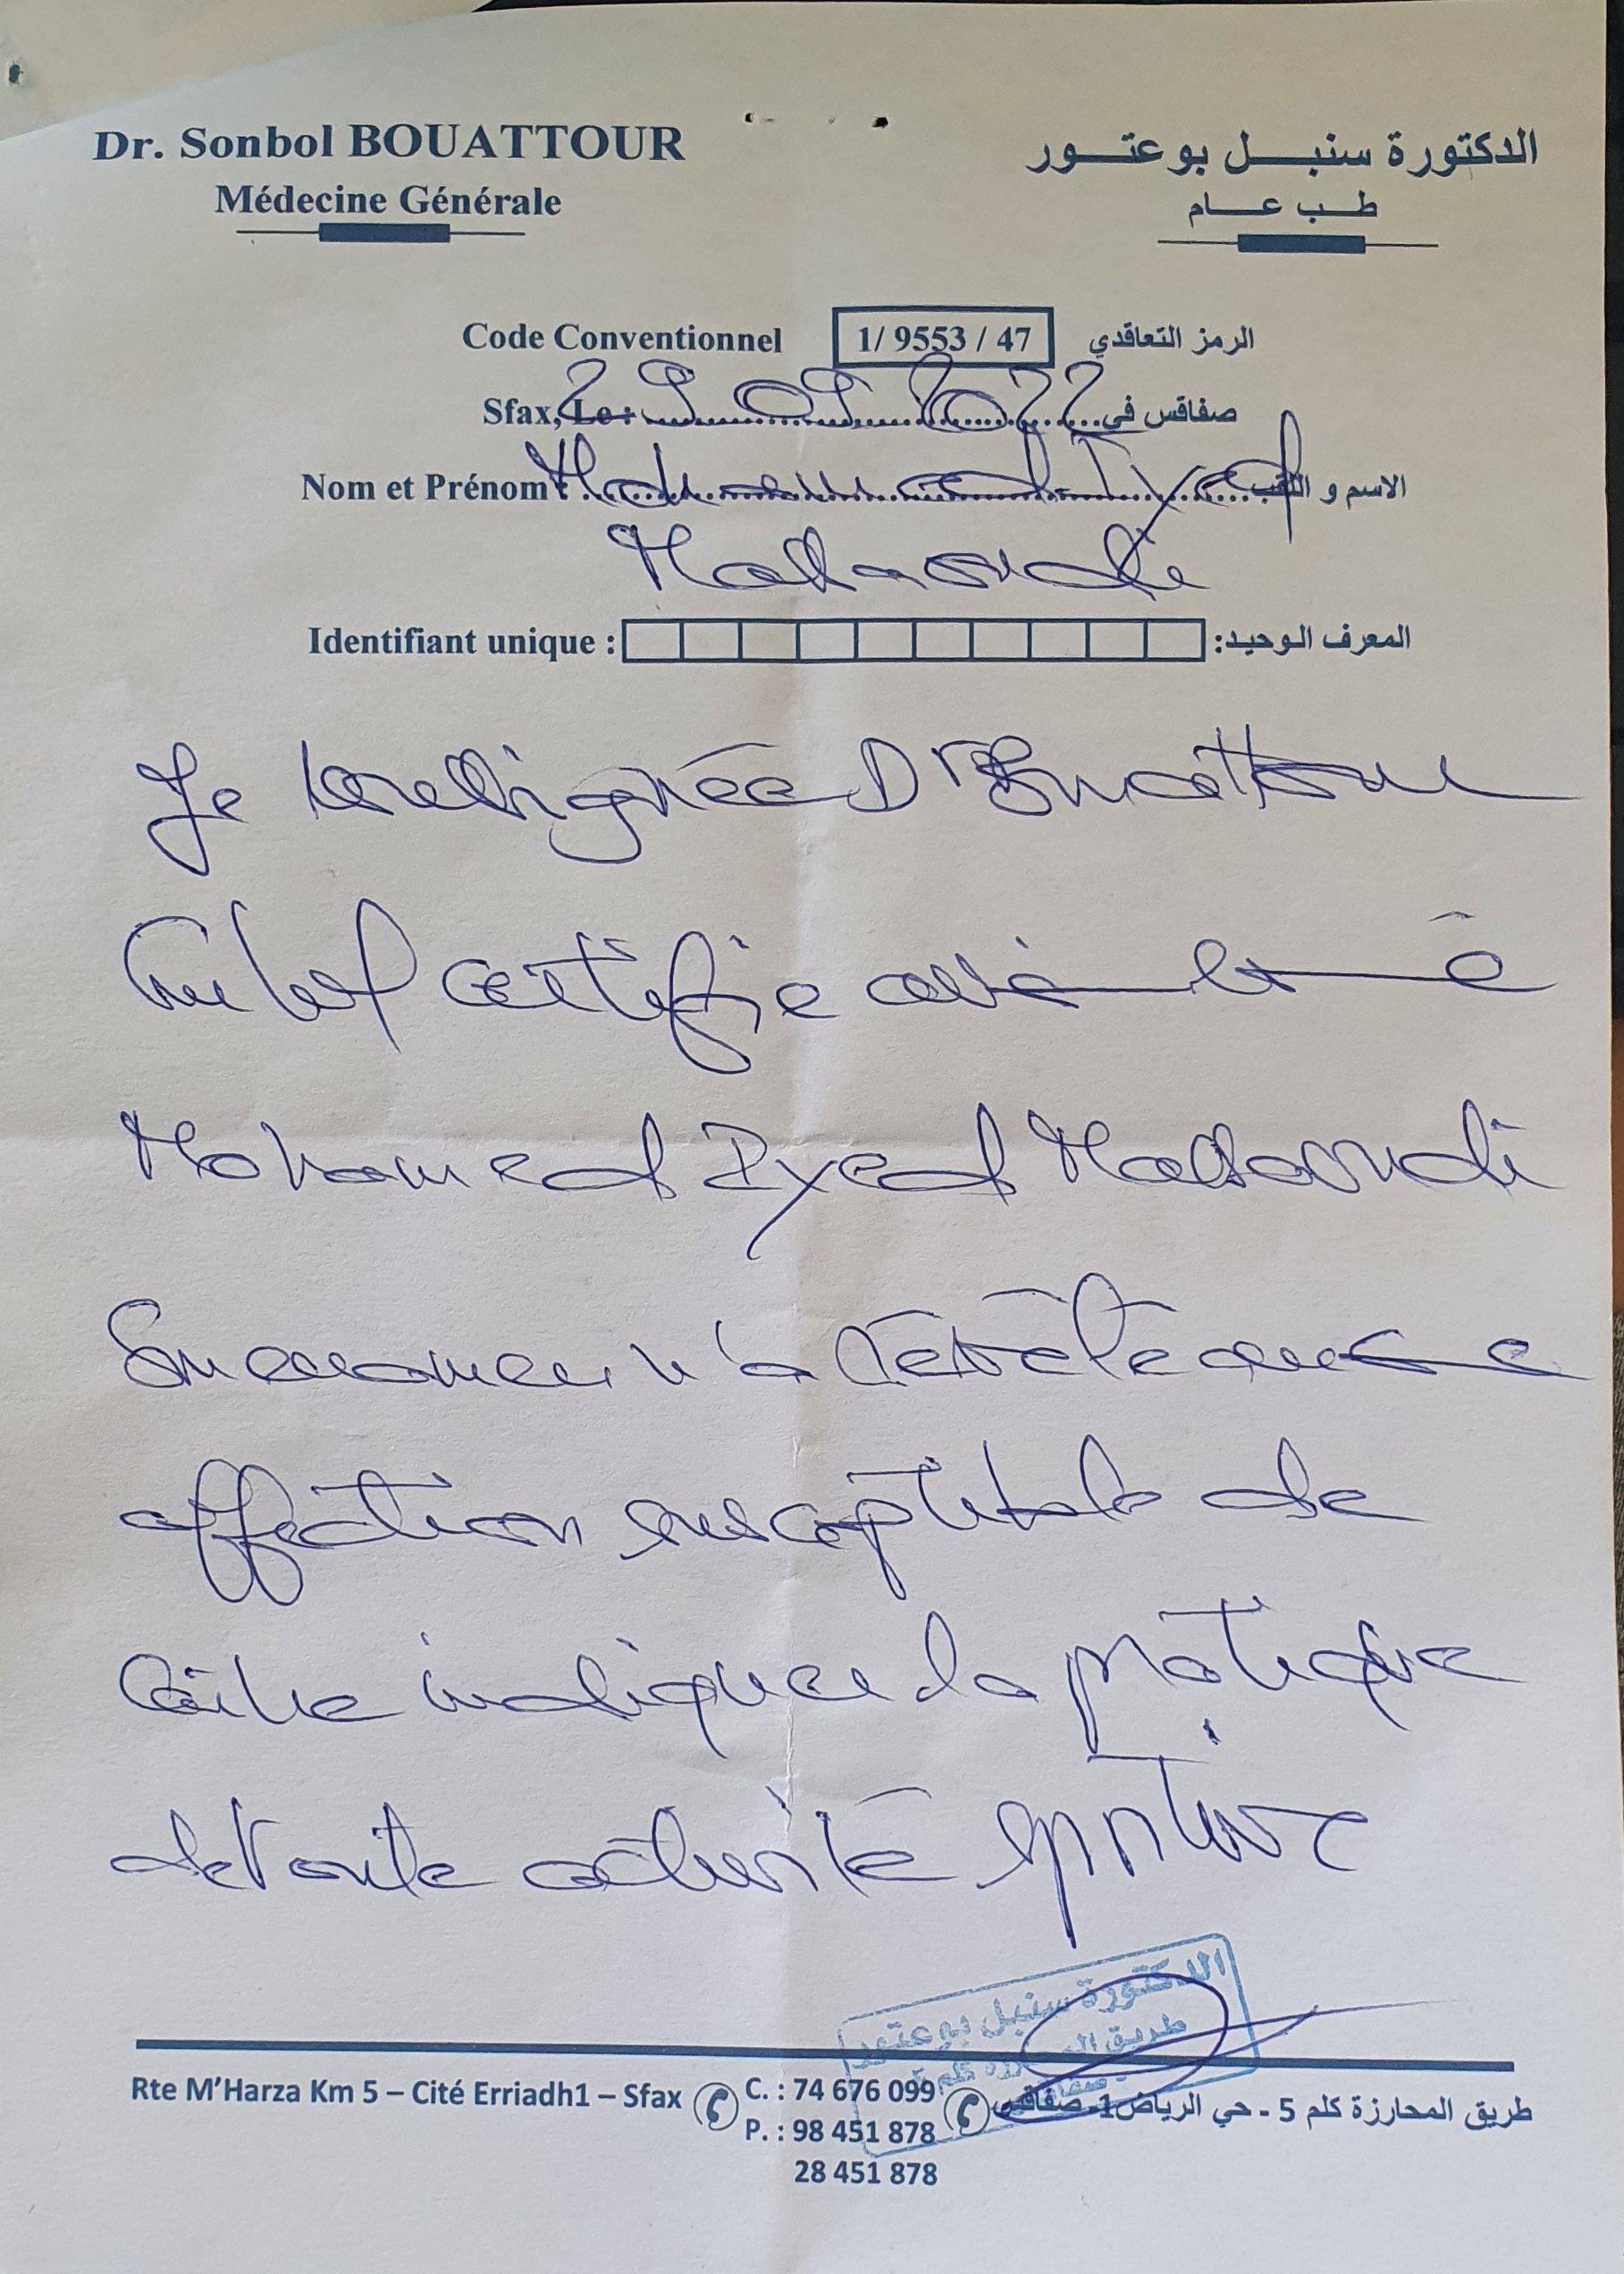 Dr. Sonbol BOUATTOUR
Médecine Générale
الدكتورة سنبل بوعتور
طب عام
Code Conventionnel 1/ 9553 / 47 الرمز التعاقدي
Sfax, Le : 29 09 2022 صفاقس في
Nom et Prénom : Mohamed Iyed الاسم و اللقب
Masmoudi
Identifiant unique : المعرف الوحيد:
Je soussignée Dr Bouattour
Sonbol certifie avoir examiné
Mohamed Iyed Masmoudi
Son examen n'a révélé aucune
affection susceptible de
contre indiquer la pratique
de toute activité sportive
الدكتورة سنبل بوعتور
Rte M'Harza Km 5 – Cité Erriadh1 – Sfax
C. : 74 676 099
P. : 98 451 878
28 451 878
طريق المحارزة كلم 5 - حي الرياض1- صفاقس